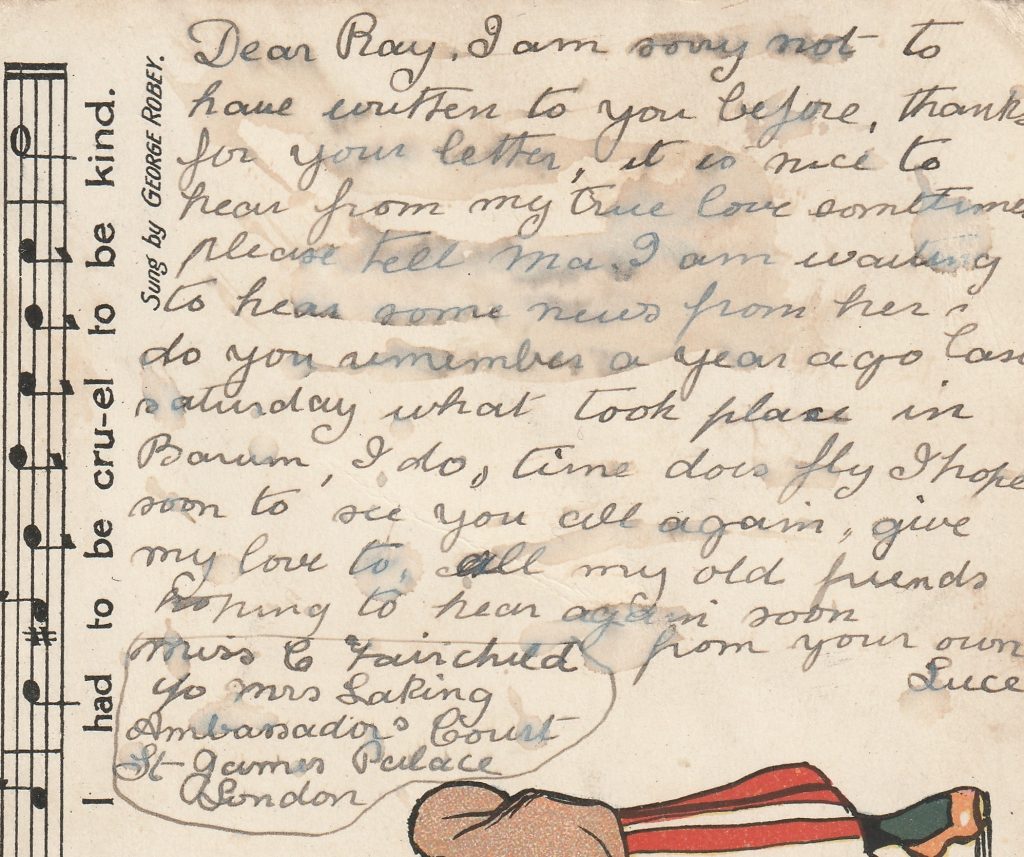 Dear Ray, I am sorry not to
have written to you before, thanks
for your letter, it is nice to
hear from my true love sometimes
please tell Ma. I am waiting
to hear some news from her
do you remember a year ago las
saturday what took place in
Barum, I do, time does fly I hope
soon to see you all again, give
my love to, all my old friends
hoping to hear again soon
from your own
Luce
Miss C Fairchild
c/o mrs Laking
Ambassador's Court
St James Palace
London
I had to be cru-el to be kind.
Sung by GEORGE ROBEY.